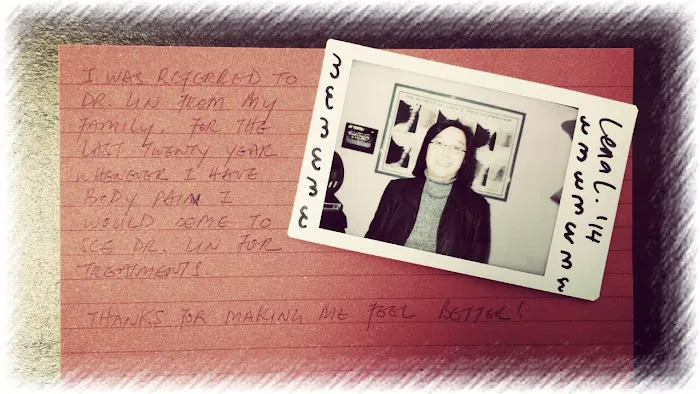 I WAS REFERRED TO
DR. LIN FROM MY
FAMILY. FOR THE
LAST TWENTY YEAR
WHENEVER I HAVE
BODY PAIN I
WOULD COME TO
SEE DR. LIN FOR
TREATMENTS.
THANKS FOR MAKING ME FEEL BETTER!
Lena L. '14